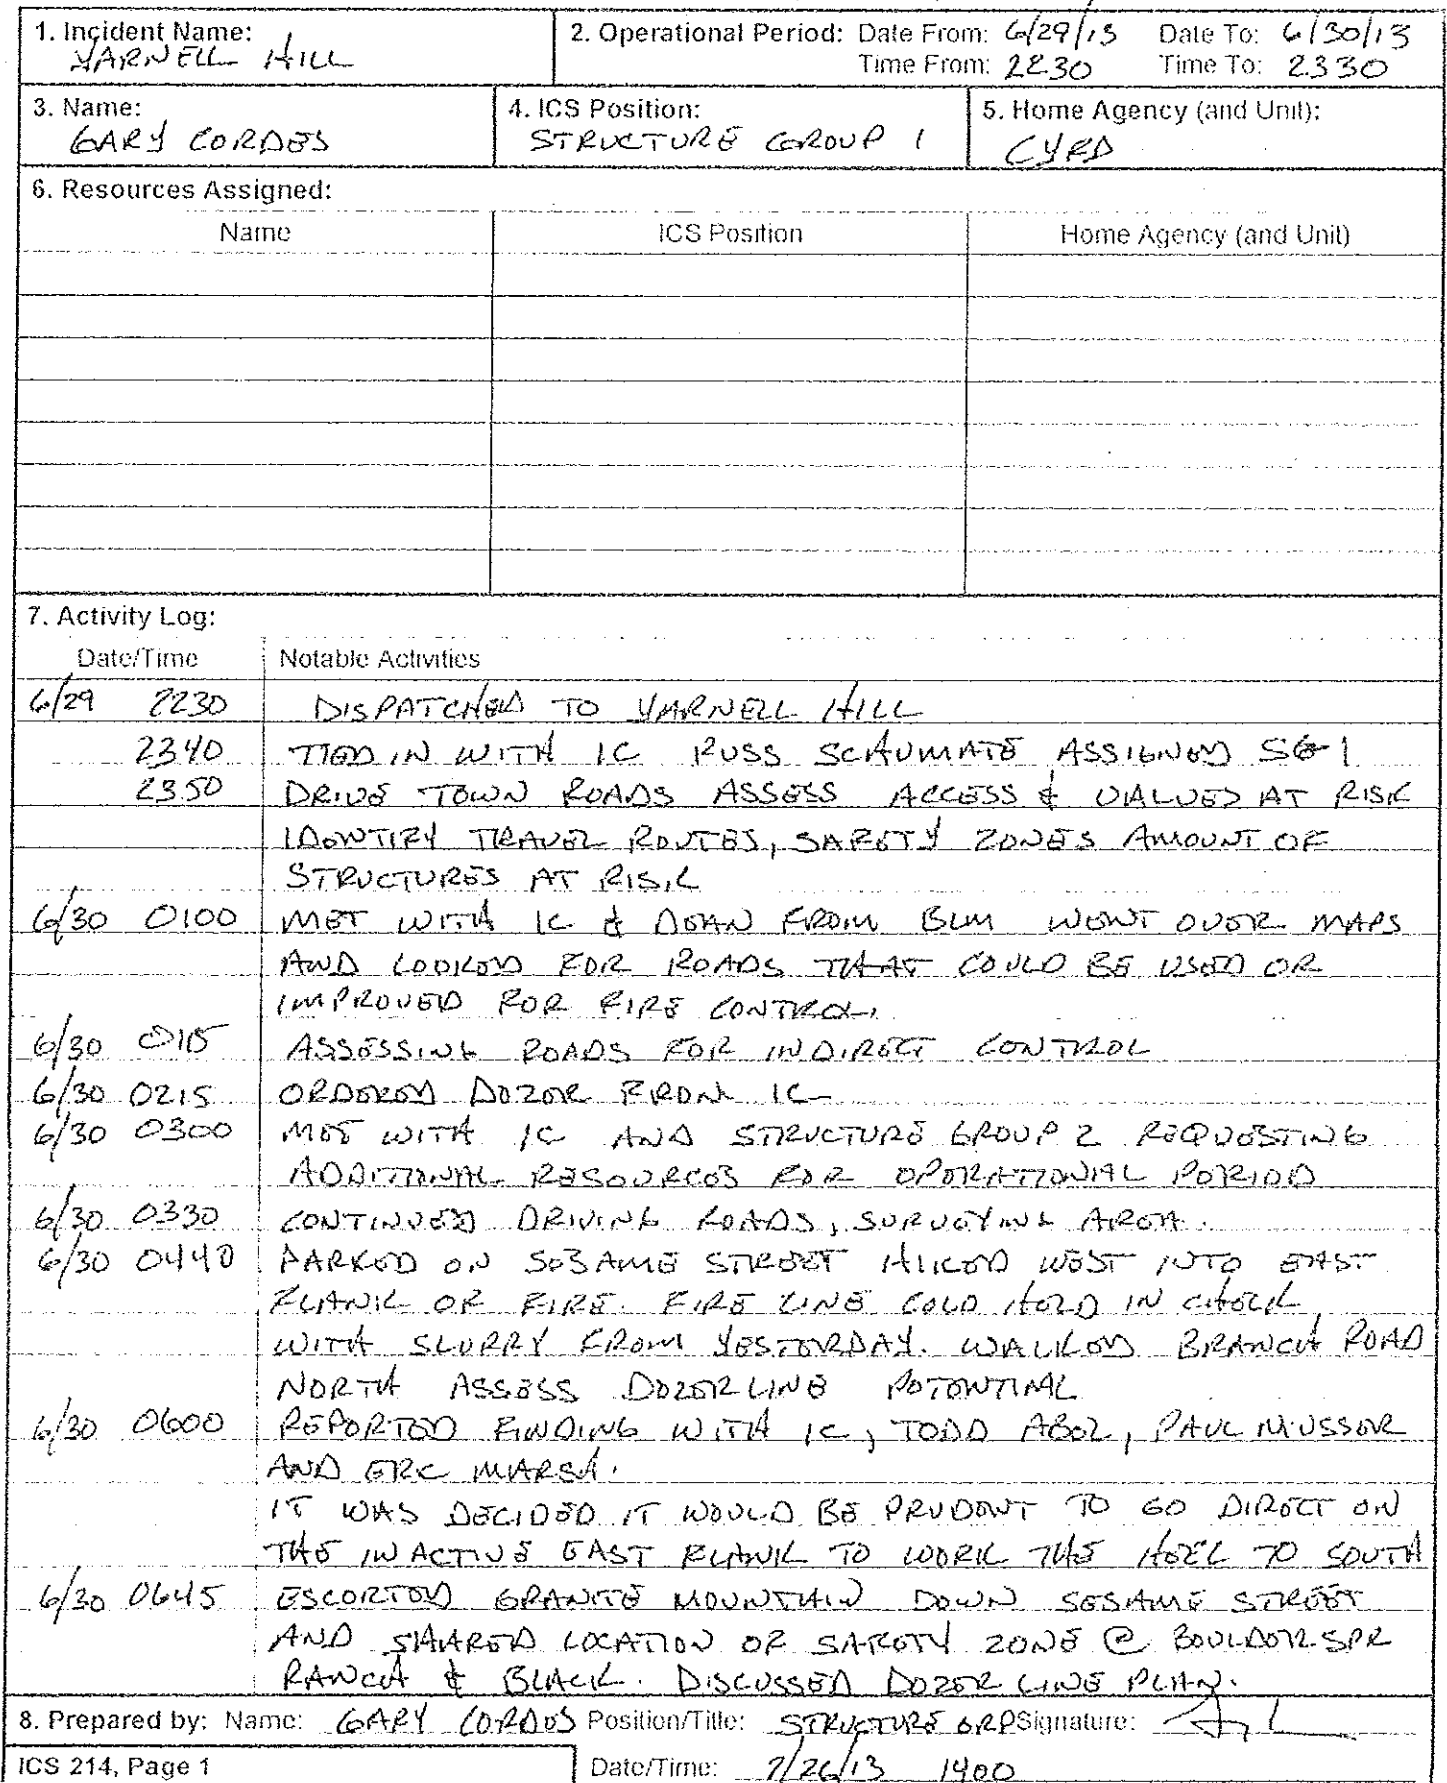 1. Incident Name: 2. Operational Period: Date From: 6/29/13 Date To: 6/30/13
YARNELL HILL Time From: 2230 Time To: 2330
3. Name: 4. ICS Position: 5. Home Agency (and Unit):
GARY CORDES STRUCTURE GROUP 1 CYFD
6. Resources Assigned:
Name ICS Position Home Agency (and Unit)
7. Activity Log:
Date/Time Notable Activities
6/29 2230 DISPATCHED TO YARNELL HILL
2340 TIED IN WITH IC RUSS SCHUMATE ASSIGNED SG 1
2350 DRIVE TOWN ROADS ASSESS ACCESS & VALUES AT RISK
IDENTIFY TRAVEL ROUTES, SAFETY ZONES AMOUNT OF
STRUCTURES AT RISK
6/30 0100 MET WITH IC & DEAN FROM BLM WENT OVER MAPS
AND LOOKED FOR ROADS THAT COULD BE USED OR
IMPROVED FOR FIRE CONTROL.
6/30 0115 ASSESSING ROADS FOR INDIRECT CONTROL
6/30 0215 ORDERED DOZER FROM IC
6/30 0300 MET WITH IC AND STRUCTURE GROUP 2 REQUESTING
ADDITIONAL RESOURCES FOR OPERATIONIAL PERIOD
6/30 0330 CONTINUED DRIVING ROADS, SURVEYING AREA.
6/30 0440 PARKED ON SESAME STREET HIKED WEST INTO EAST
FLANK OF FIRE. FIRE LINE COLD HELD IN CHECK
WITH SLURRY FROM YESTERDAY. WALKED BRANCH ROAD
NORTH ASSESS DOZER LINE POTENTIAL
6/30 0600 REPORTED FINDING WITH IC, TODD ABEL, PAUL MUSSER
AND ERIC MARSH.
IT WAS DECIDED IT WOULD BE PRUDENT TO GO DIRECT ON
THE INACTIVE EAST FLANK TO WORK THE HEEL TO SOUTH
6/30 0645 ESCORTED GRANITE MOUNTAIN DOWN SESAME STREET
AND SHARED LOCATION OF SAFETY ZONE @ BOULDER SPR
RANCH & BLACK. DISCUSSED DOZER LINE PLAN.
8. Prepared by: Name: GARY CORDES Position/Title: STRUCTURE GRP Signature:
ICS 214, Page 1 Date/Time: 7/26/13 1400